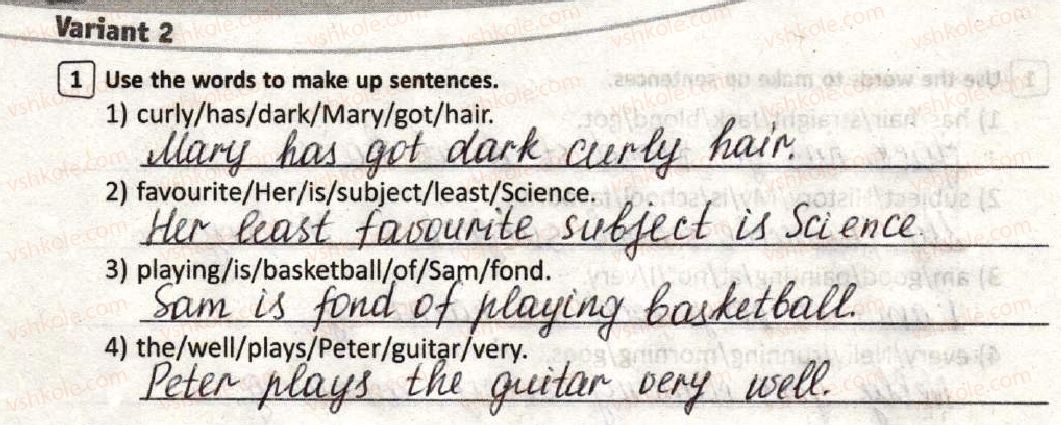 Variant 2
1 Use the words to make up sentences.
1) curly/has/dark/Mary/got/hair.
Mary has got dark curly hair.
2) favourite/Her/is/subject/least/Science.
Her least favourite subject is Science.
3) playing/is/basketball/of/Sam/fond.
Sam is fond of playing basketball.
4) the/well/plays/Peter/guitar/very.
Peter plays the guitar very well.